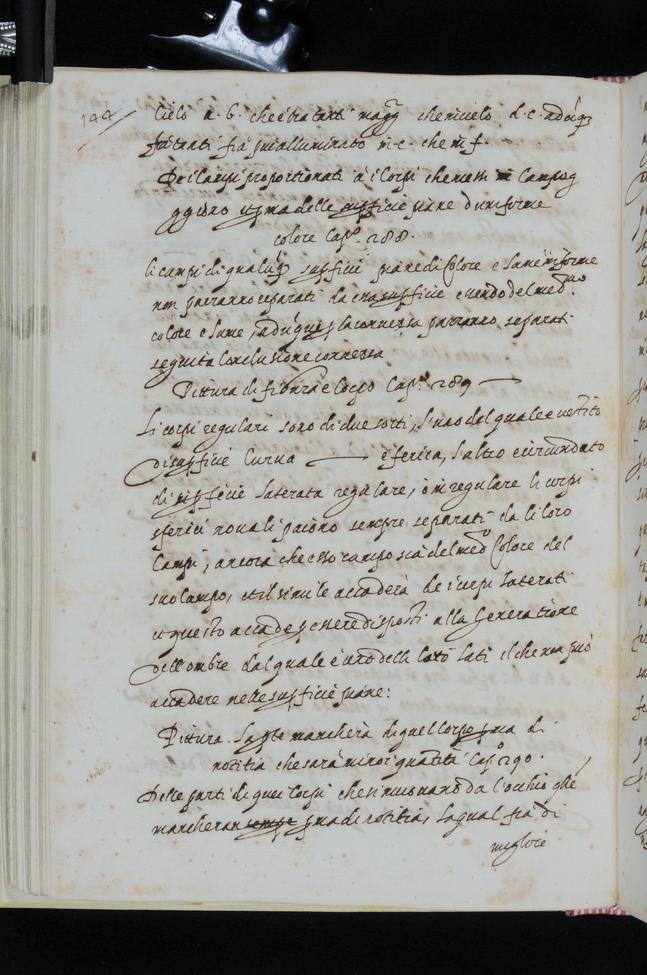 144
Cielo a. G. che è tra tanti magg che in cielo d. c. adūq
fia tanti fia più alluminato in. c. che in f.
De i campi proportionati a i corpi che in essi campeg
ggiano et p.ma delle superficie piane d'uniforme
colore Cap.º 288.
li campi di qualūq superficie piane di Colore e lume uniforme
non parranno separati da essa superficie essendo del med.mo
colore e lume, adūque p la conversa parranno separati
seguita Conclusione conversa
Pittura di figura e corpo Cap.º 289
Li corpi regulari sono di due sorti, l'uno del quale e vestito
Di superficie Curva sferica, l'altro e circundato
di superficie laterata regulare, ò irregulare li corpi
sferici paiono sempre separati da li loro
Campi, ancora che esso campo sia del med.º Colore del
suo campo, et il simile accaderà de i corpi laterati
et questo accade p essere disposti alla Generatione
dell'ombre dal quale è uno delli lati il che non può
accadere nelle superficie piane:
Pittura. La pte mancherà di quel corpo p.ma di
notitia che sarà minor quantità Cap.º 290.
Delle parti di quei Corpi che si muovano da l'occhio
mancheran p.ma di notitia, la qual fia di
migliore